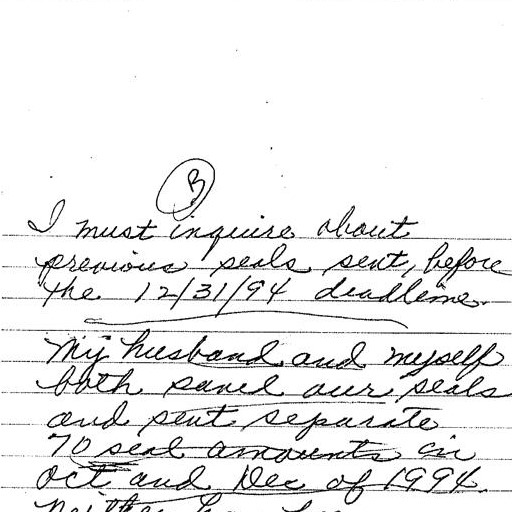 B
I must inquire about
previous seals sent, before
the 12/31/94 deadline.
My husband and myself
both saved our seals
and sent separate
70 seal amounts in
Oct and Dec of 1994.